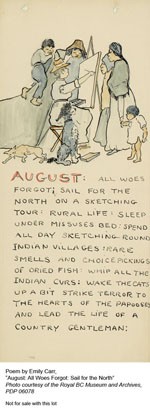 AUGUST: ALL WOES
FORGOT; SAIL FOR THE
NORTH ON A SKETCHING
TOUR: RURAL LIFE: SLEEP
UNDER MISSUSES BED: SPEND
ALL DAY SKETCHING ROUND
INDIAN VILLAGES: RARE
SMELLS AND CHOICE PICKINGS
OF DRIED FISH: WHIP ALL THE
INDIAN CURS: WAKE THE CATS
UP A BIT STRIKE TERROR TO
THE HEARTS OF THE PAPOOSES
AND LEAD THE LIFE OF A
COUNTRY GENTLEMAN:
Poem by Emily Carr,
"August: All Woes Forgot: Sail for the North"
Photo courtesy of the Royal BC Museum and Archives,
PDP 06078
Not for sale with this lot